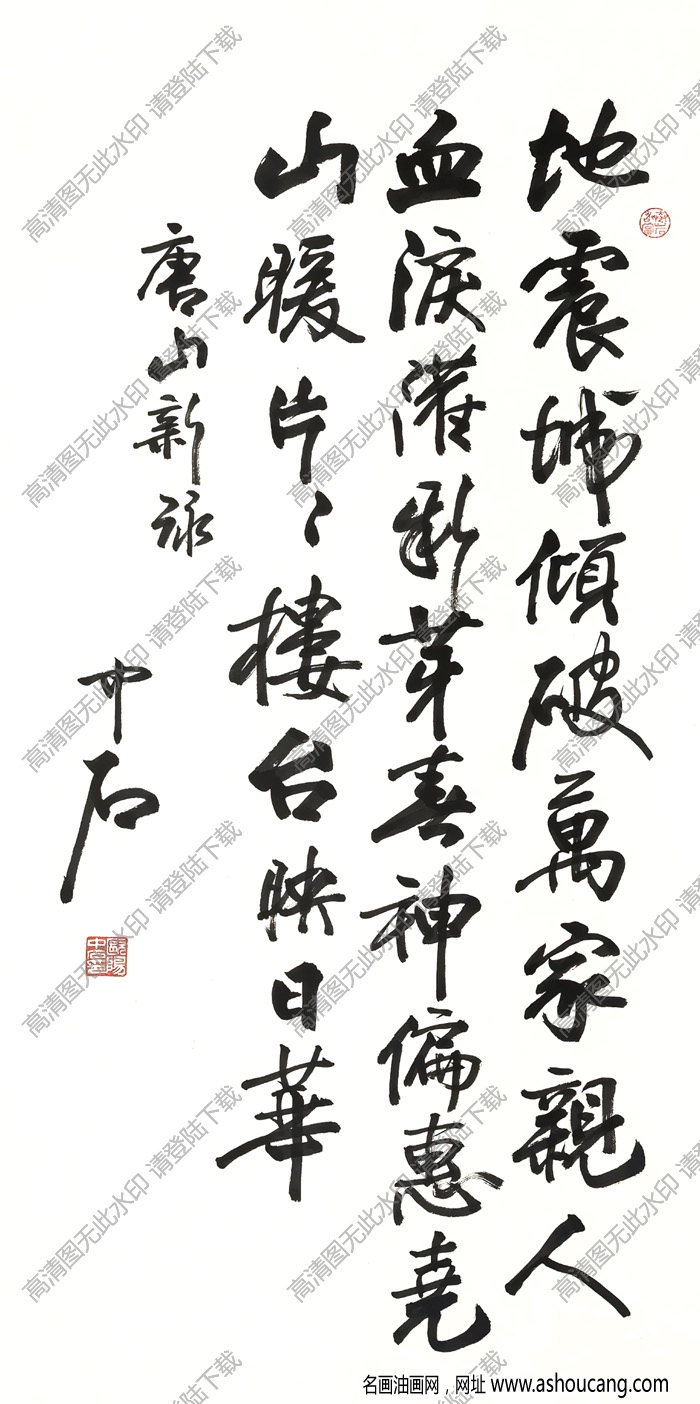 地震城傾破萬家親人
血淚灌新芽春神偏惠堯
山暖片〻樓台映日華
唐山新詠
中石
歐陽中石
高清图无此水印 请登陆下载
名画油画网，网址 www.ashoucang.com